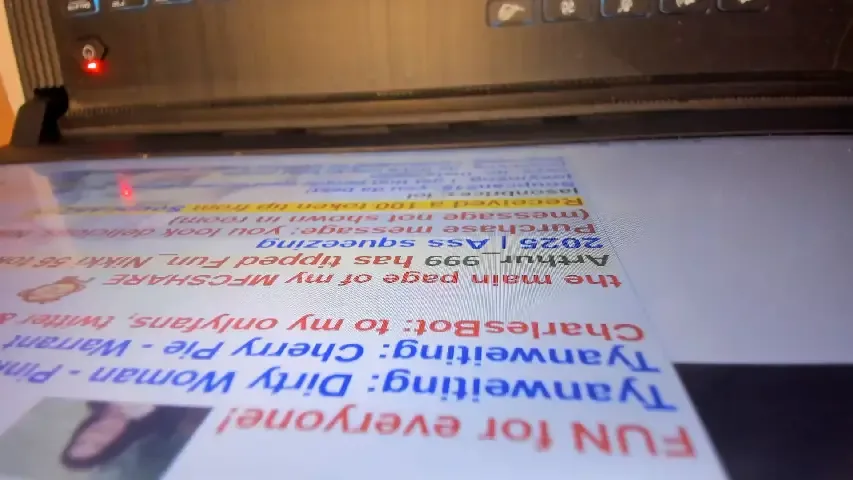 FUN for everyone!
Tyanweiting: Dirty Woman - Pink
Tyanweiting: Cherry Pie - Warrant
CharlesBot: to my onlyfans, twitter &
the main page of my MFCSHARE
Arthur_999 has tipped Fun_Nikki 56
2025 | Ass squeezing
Purchase message: you look
(message not shown in room)
Received a 100 token tip from
lol
you da best